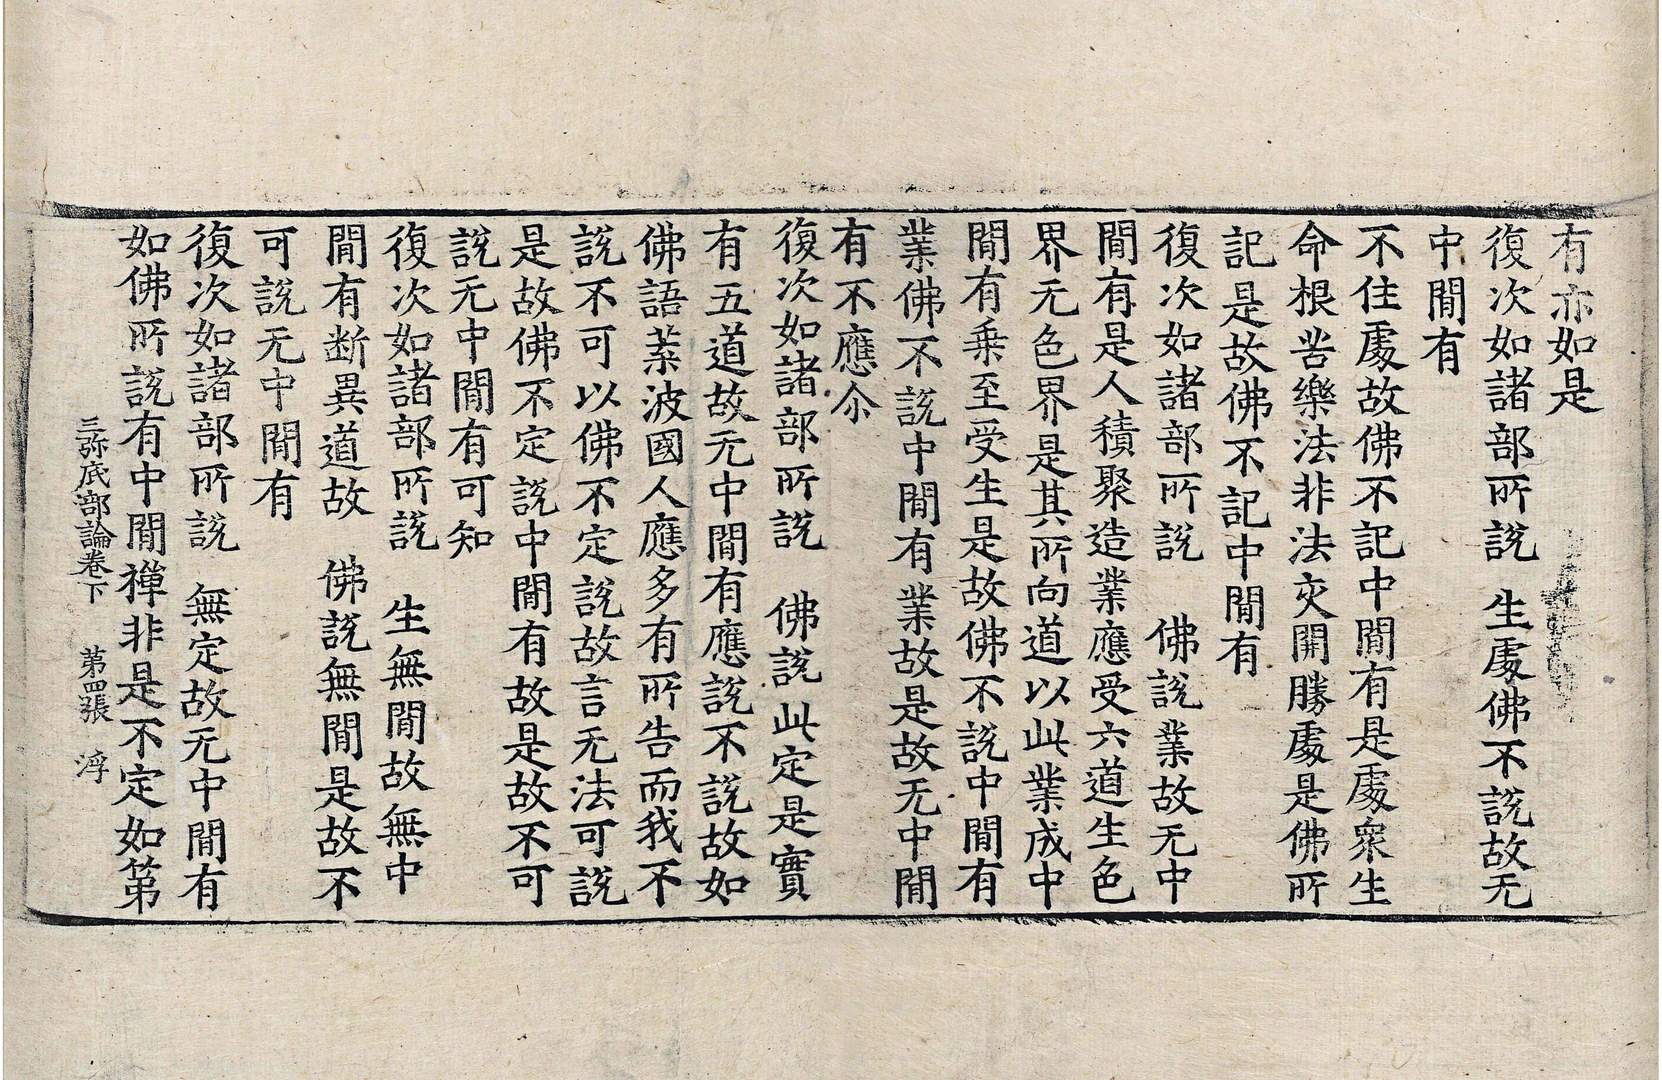 有亦如是
復次如諸部所說　生處佛不說故无
中閒有
不住處故佛不記中閒有是處衆生
命根苦樂法非法交開勝處是佛所
記是故佛不記中閒有
復次如諸部所說　佛說業故无中
閒有是人積聚造業應受六道生色
界无色界是其所向道以此業成中
閒有乗至受生是故佛不說中閒有
業佛不說中閒有業故是故无中閒
有不應尒
復次如諸部所說　佛說此定是實
有五道故无中閒有應說不說故如
佛語蔾波國人應多有所告而我不
說不可以佛不定說故言无法可說
是故佛不定說中閒有故是故不可
說无中閒有可知
復次如諸部所說　生無閒故無中
閒有断異道故　佛說無閒是故不
可說无中閒有
復次如諸部所說　無定故无中閒有
如佛所說有中閒禪非是不定如第
三弥底部論卷下　第四張　浮